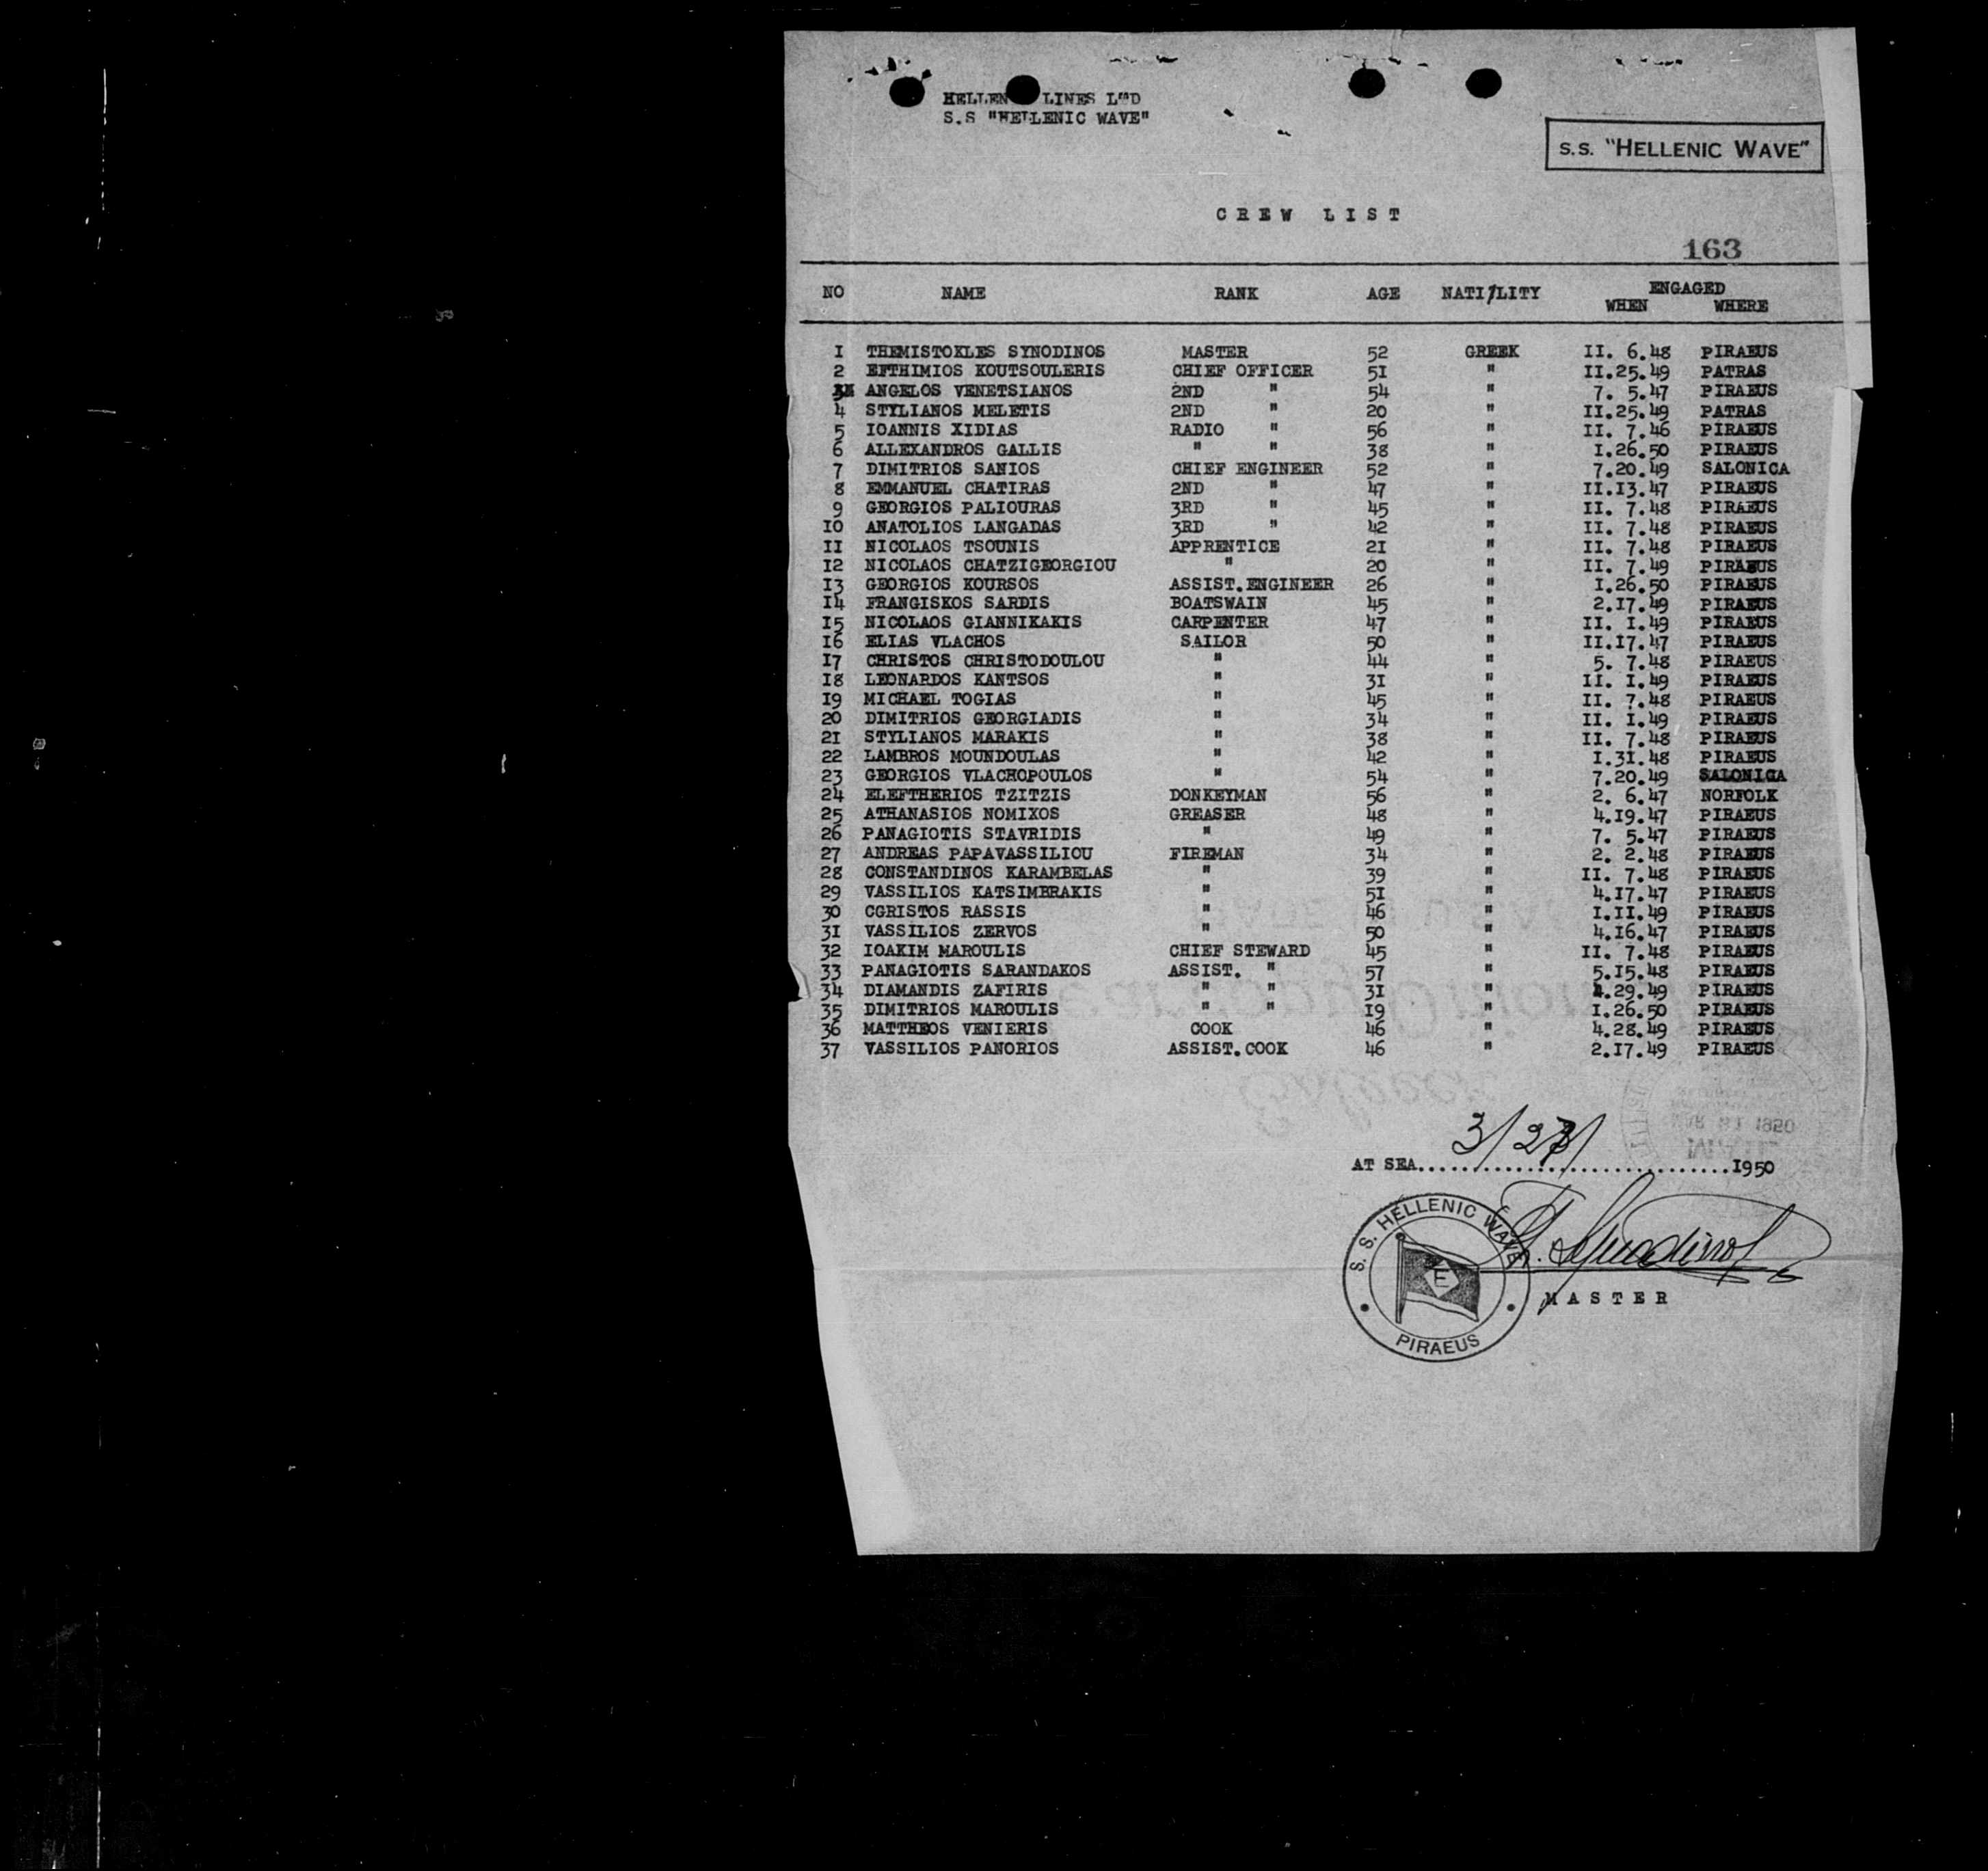 HELLEN LINES LTD
S.S "HELLENIC WAVE"
S.S. "HELLENIC WAVE"
CREW LIST
163
NO NAME RANK AGE NATI/LITY ENGAGED
WHEN WHERE
I THEMISTOKLES SYNODINOS MASTER 52 GREEK II. 6.48 PIRAEUS
2 EFTHIMIOS KOUTSOULERIS CHIEF OFFICER 5I " II.25.49 PATRAS
3 ANGELOS VENETSIANOS 2ND " 54 " 7. 5.47 PIRAEUS
4 STYLIANOS MELETIS 2ND " 20 " II.25.49 PATRAS
5 IOANNIS XIDIAS RADIO " 56 " II. 7.46 PIRAEUS
6 ALLEXANDROS GALLIS " " 38 " I.26.50 PIRAEUS
7 DIMITRIOS SANIOS CHIEF ENGINEER 52 " 7.20.49 SALONICA
8 EMMANUEL CHATIRAS 2ND " 47 " II.I3.47 PIRAEUS
9 GEORGIOS PALIOURAS 3RD " 45 " II. 7.48 PIRAEUS
IO ANATOLIOS LANGADAS 3RD " 42 " II. 7.48 PIRAEUS
II NICOLAOS TSOUNIS APPRENTICE 2I " II. 7.48 PIRAEUS
I2 NICOLAOS CHATZIGEORGIOU " 20 " II. 7.49 PIRAEUS
I3 GEORGIOS KOURSOS ASSIST.ENGINEER 26 " I.26.50 PIRAEUS
I4 FRANGISKOS SARDIS BOATSWAIN 45 " 2.I7.49 PIRAEUS
I5 NICOLAOS GIANNIKAKIS CARPENTER 47 " II. I.49 PIRAEUS
I6 ELIAS VLACHOS SAILOR 50 " II.I7.47 PIRAEUS
I7 CHRISTOS CHRISTODOULOU " 44 " 5. 7.48 PIRAEUS
I8 LEONARDOS KANTSOS " 3I " II. I.49 PIRAEUS
I9 MICHAEL TOGIAS " 45 " II. 7.48 PIRAEUS
20 DIMITRIOS GEORGIADIS " 34 " II. I.49 PIRAEUS
2I STYLIANOS MARAKIS " 38 " II. 7.48 PIRAEUS
22 LAMBROS MOUNDOULAS " 42 " I.3I.48 PIRAEUS
23 GEORGIOS VLACHOPOULOS " 54 " 7.20.49 SALONICA
24 ELEFTHERIOS TZITZIS DONKEYMAN 56 " 2. 6.47 NORFOLK
25 ATHANASIOS NOMIXOS GREASER 48 " 4.I9.47 PIRAEUS
26 PANAGIOTIS STAVRIDIS " 49 " 7. 5.47 PIRAEUS
27 ANDREAS PAPAVASSILIOU FIREMAN 34 " 2. 2.48 PIRAEUS
28 CONSTANDINOS KARAMBELAS " 39 " II. 7.48 PIRAEUS
29 VASSILIOS KATSIMBRAKIS " 5I " 4.I7.47 PIRAEUS
30 CGRISTOS RASSIS " 46 " I.II.49 PIRAEUS
3I VASSILIOS ZERVOS " 50 " 4.I6.47 PIRAEUS
32 IOAKIM MAROULIS CHIEF STEWARD 45 " II. 7.48 PIRAEUS
33 PANAGIOTIS SARANDAKOS ASSIST. " 57 " 5.I5.48 PIRAEUS
34 DIAMANDIS ZAFIRIS " " 3I " 4.29.49 PIRAEUS
35 DIMITRIOS MAROULIS " " I9 " I.26.50 PIRAEUS
36 MATTHEOS VENIERIS COOK 46 " 4.28.49 PIRAEUS
37 VASSILIOS PANORIOS ASSIST.COOK 46 " 2.I7.49 PIRAEUS
AT SEA..............................I950
S. S. HELLENIC WAVE
E
PIRAEUS
MASTER